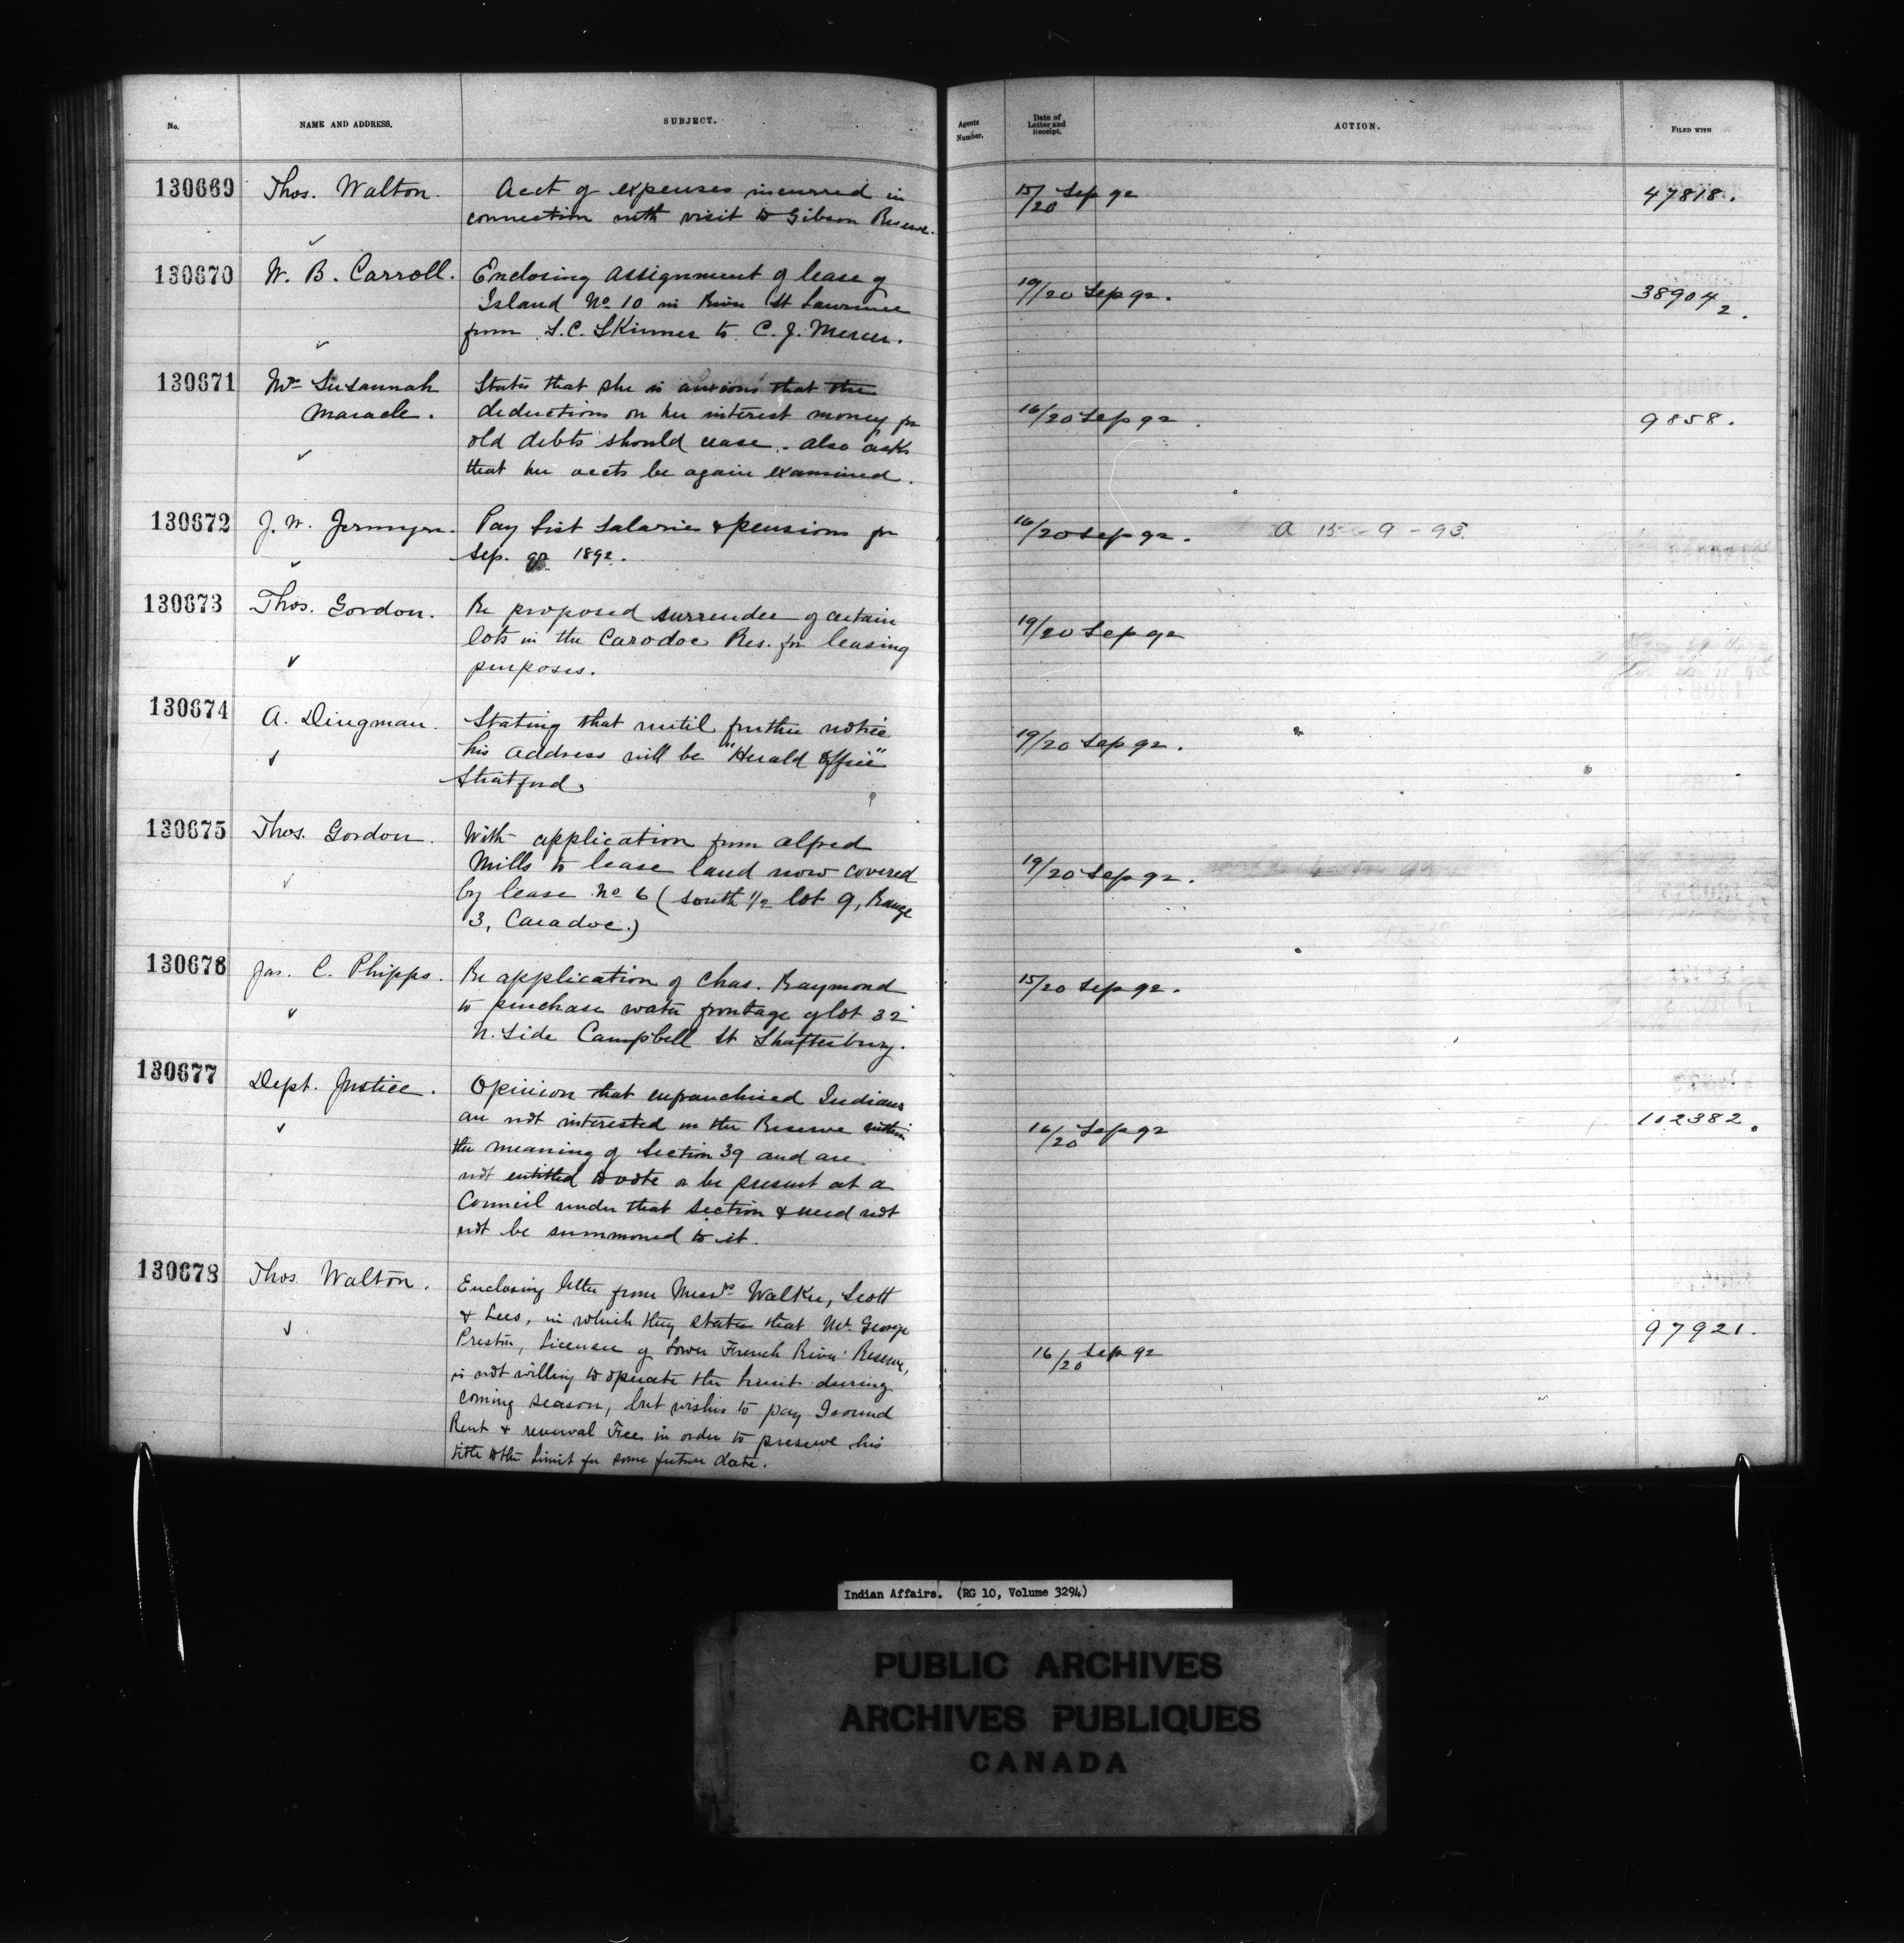 No.
NAME AND ADDRESS.
SUBJECT.
Agents Number.
Date of Letter and Receipt.
ACTION.
FILED WITH
130669 Thos. Walton. Acct of expenses incurred in 15/20 Sep 92 47818.
connection with visit to Gibson Reserve.
130670 W. B. Carroll. Enclosing assignment of lease of 19/20 Sep 92. 38904 2.
Island No 10 in River St Lawrence
from S.C. Skinner to C. J. Mercer.
130671 Mrs Susannah States that she is anxious that the 16/20 Sep 92. 9858.
Maracle. deductions on her interest money for
old debts should cease. also asks
that her accts be again examined.
130672 J. W. Jermyn. Pay List Salaries & pensions for 16/20 Sep 92. A 15-9-93.
Sep. qr 1892.
130673 Thos. Gordon. Re proposed surrender of certain 19/20 Sep 92
lots in the Carodoc Res. for leasing
purposes.
130674 A. Dingman. Stating that until further notice 19/20 Sep 92.
his address will be "Herald Office"
Stratford.
130675 Thos. Gordon. With application from Alfred 19/20 Sep 92.
Mills to lease land now covered
by lease No 6 (South 1/2 lot 9, Range
3, Caradoc.)
130676 Jas. C. Phipps. Re application of Chas. Raymond 15/20 Sep 92.
to purchase water frontage of lot 32
N. Side Campbell St Shaftesbury.
130677 Dept. Justice. Opinion that enfranchised Indians 16/20 Sep 92 112382.
are not interested in the Reserve within
the meaning of Section 39 and are
not entitled to vote or be present at a
Council under that Section & need not
not be summoned to it.
130678 Thos. Walton. Enclosing letter from Messrs Walker, Scott 16/20 Sep 92 97921.
& Lees, in which they state that Mr. George
Preston, Licensee of Lower French River Reserve,
is not willing to operate the limit during
coming season, but wishes to pay Ground
Rent & renewal Fee in order to preserve his
title to the Limit for some future date.
Indian Affairs. (RG 10, Volume 3294)
PUBLIC ARCHIVES
ARCHIVES PUBLIQUES
CANADA